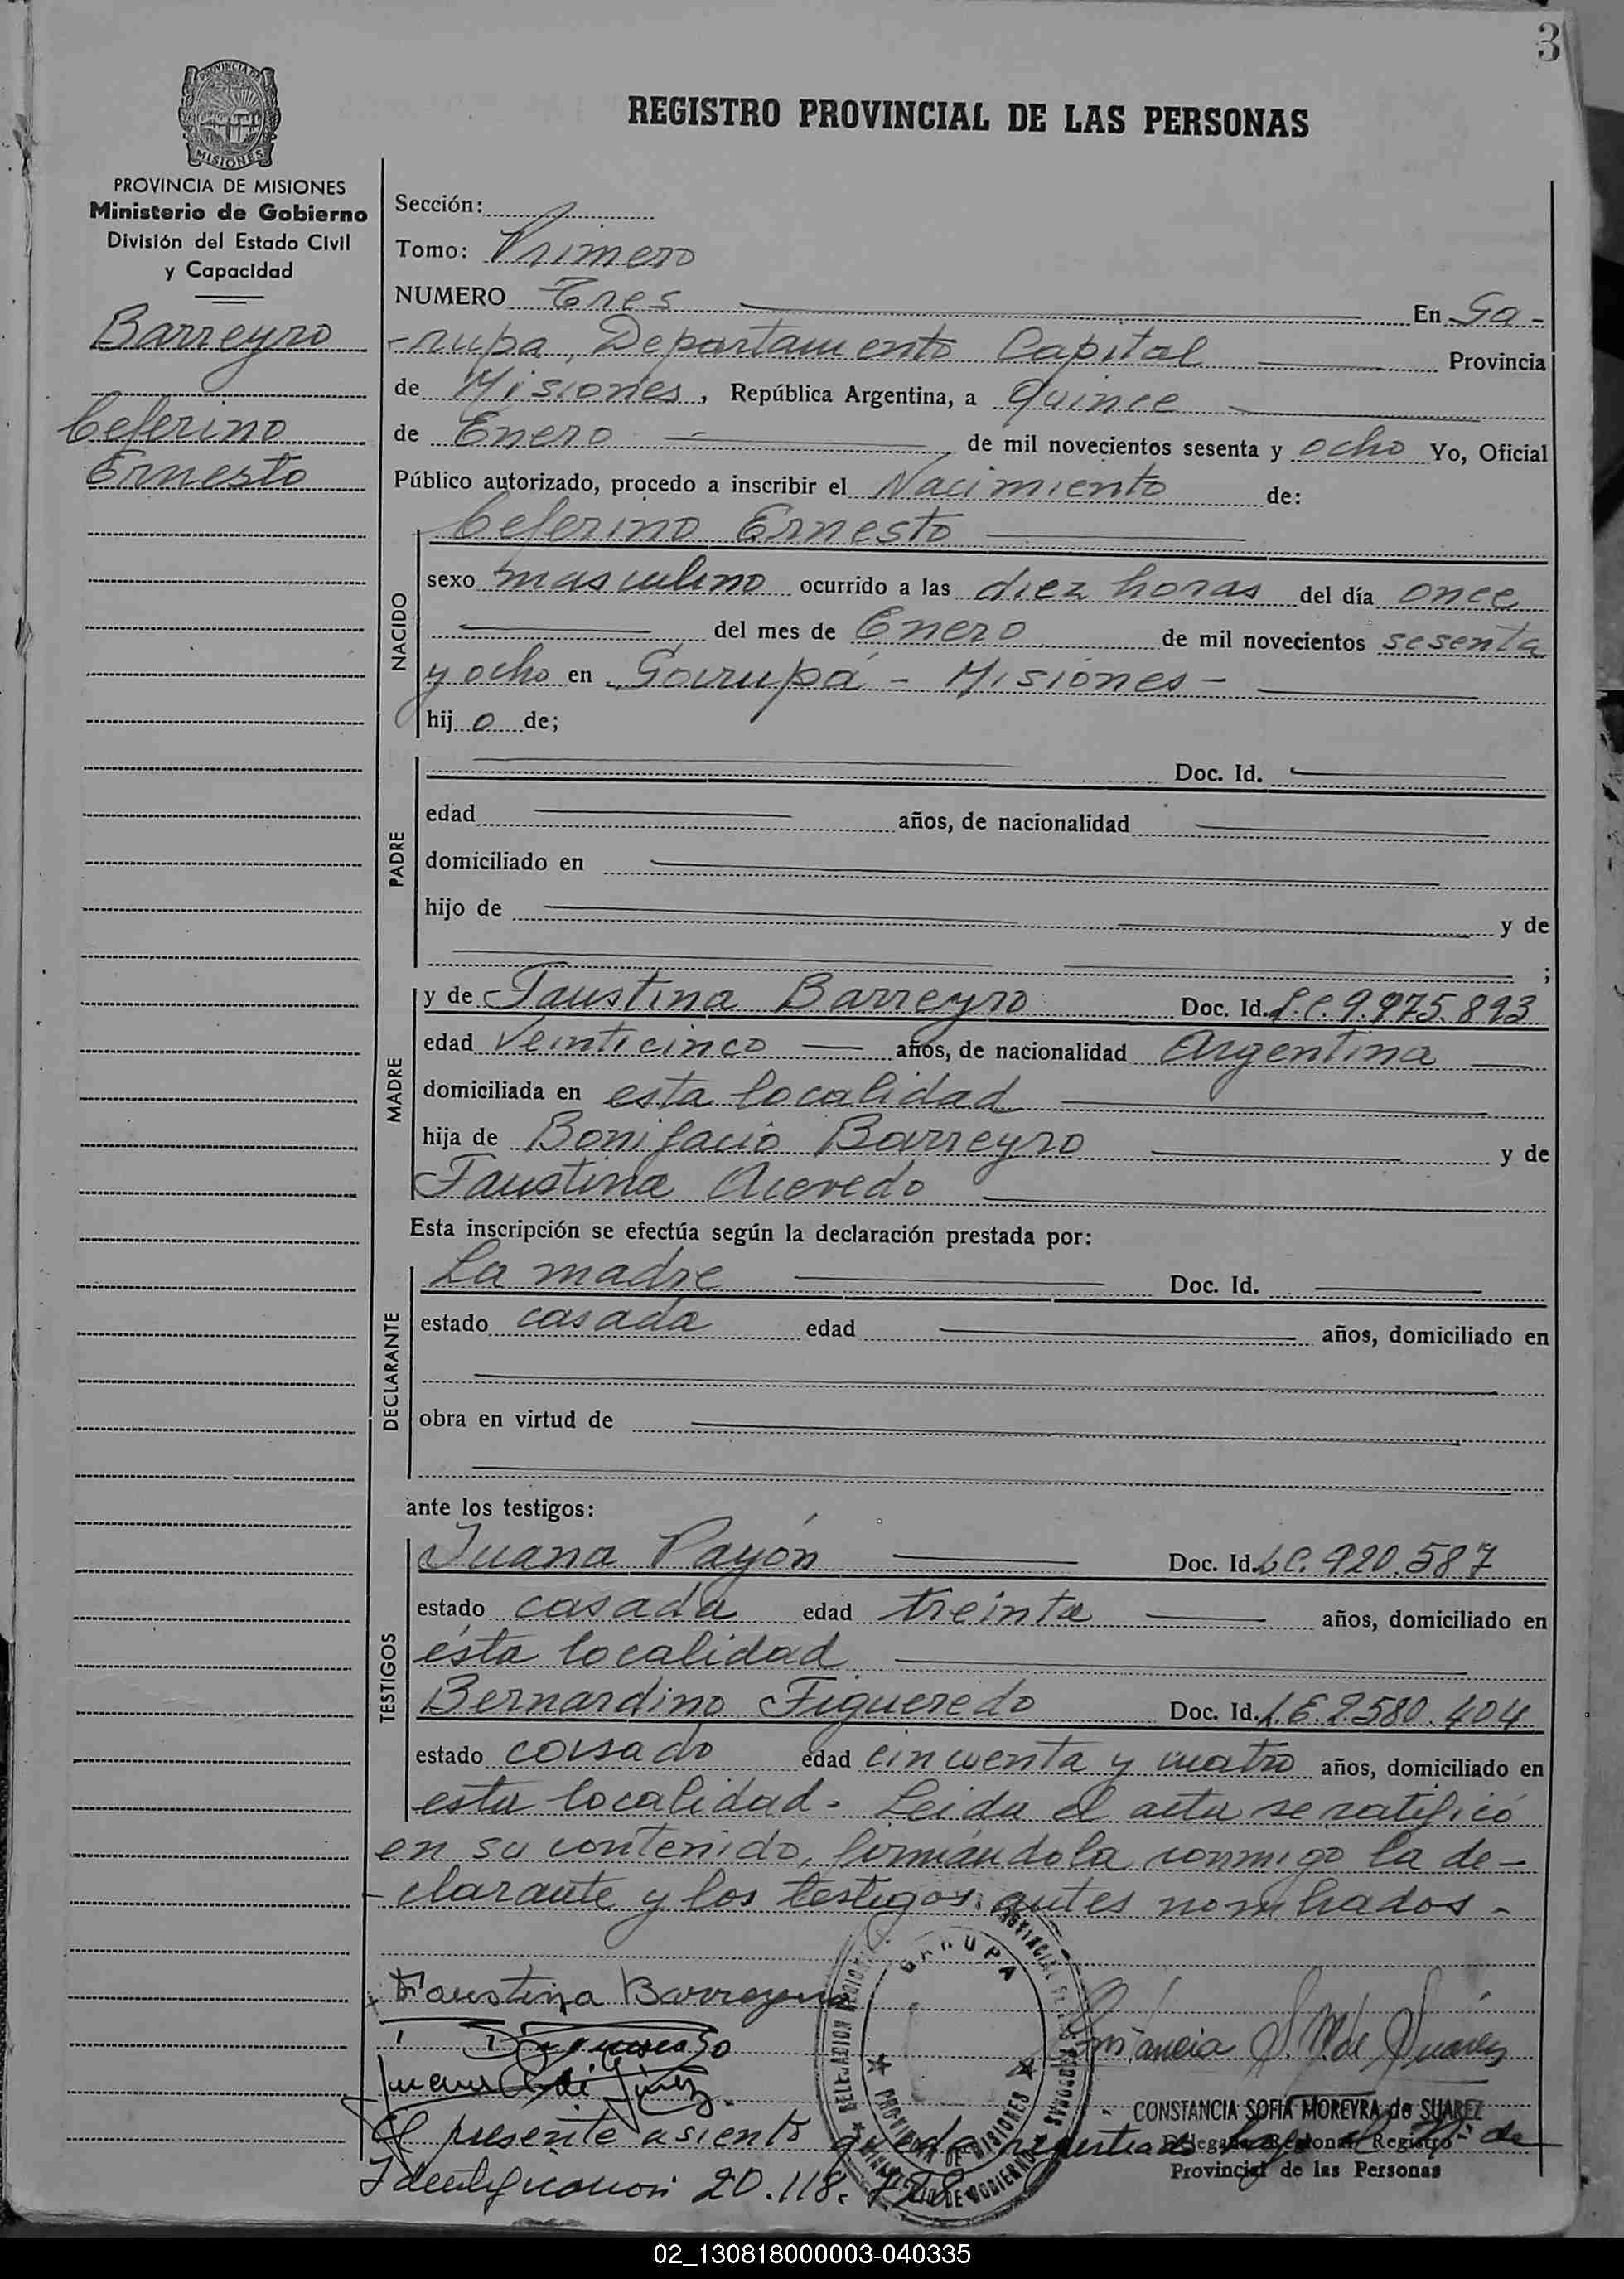 3
REGISTRO PROVINCIAL DE LAS PERSONAS
PROVINCIA DE MISIONES
PROVINCIA DE MISIONES
Ministerio de Gobierno
División del Estado Civil
y Capacidad
Barreyro
Ceferino
Ernesto
Sección:
Tomo: Primero
NUMERO Tres En Ga-
-rupa, Departamento Capital Provincia
de Misiones, República Argentina, a quince
de Enero de mil novecientos sesenta y ocho Yo, Oficial
Público autorizado, procedo a inscribir el Nacimiento de:
Ceferino Ernesto
NACIDO
sexo masculino ocurrido a las diez horas del día once
del mes de Enero de mil novecientos sesenta
y ocho en Garupá - Misiones -
hij o de;
PADRE
Doc. Id.
edad años, de nacionalidad
domiciliado en
hijo de y de
;
MADRE
y de Faustina Barreyro Doc. Id. L.C. 9.975.893
edad Veinticinco años, de nacionalidad Argentina
domiciliada en esta localidad
hija de Bonifacio Barreyro y de
Faustina Acevedo
Esta inscripción se efectúa según la declaración prestada por:
DECLARANTE
La madre Doc. Id.
estado casada edad años, domiciliado en
obra en virtud de
ante los testigos:
TESTIGOS
Juana Payón Doc. Id. LC. 920.587
estado casada edad treinta años, domiciliado en
ésta localidad
Bernardino Figueredo Doc. Id. L.E. 2580.404
estado casado edad cincuenta y cuatro años, domiciliado en
esta localidad. Leida el acta se ratificó
en su contenido, firmándola conmigo la de-
-clarante y los testigos antes nombrados -
Faustina Barreyro
GARUPA
PROVINCIA DE MISIONES
Constancia S. M. de Suárez
CONSTANCIA SOFIA MOREYRA de SUAREZ
Delegada Regional Registro
Provincial de las Personas
El presente asiento queda registrado bajo el Nº de
Identificación 20.118.
02_130818000003-040335